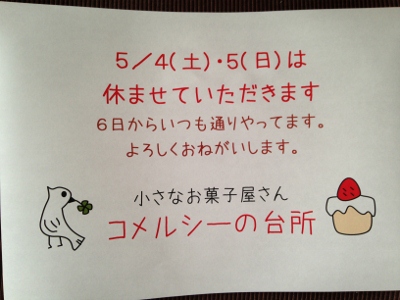 5／4(土)・5(日)は
休ませていただきます
6日からいつも通りやってます。
よろしくおねがいします。
小さなお菓子屋さん
コメルシーの台所